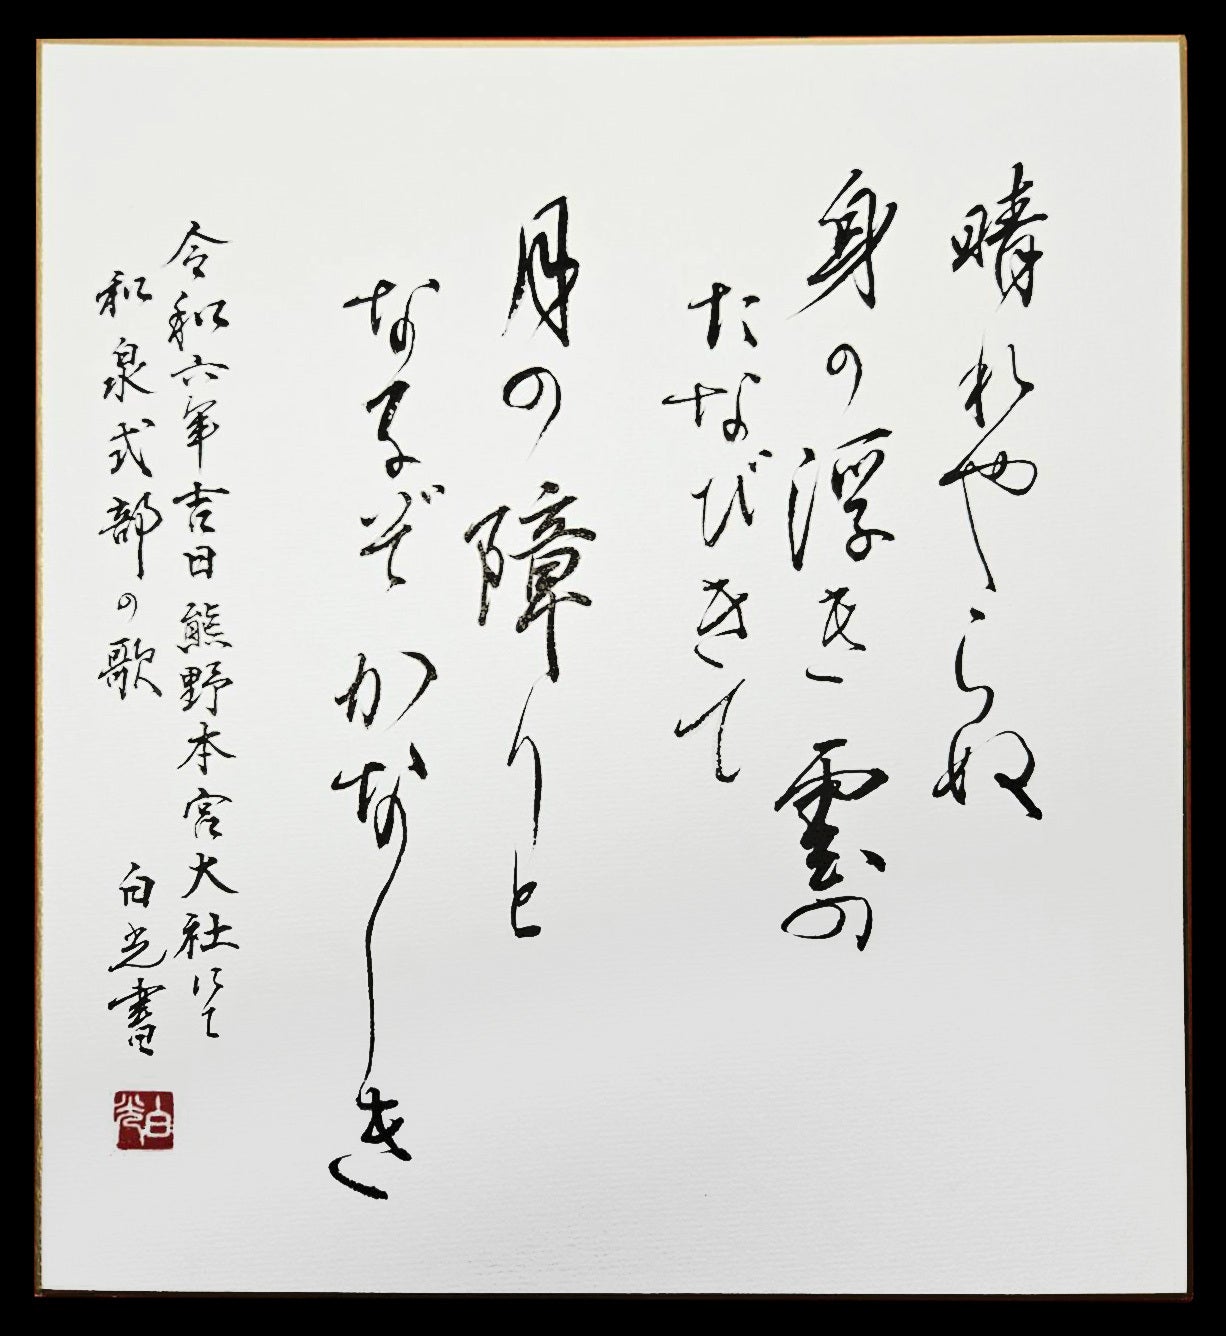 晴れやらぬ
身の浮き雲の
たなびきて
月の障りと
なるぞかなしき
令和六年吉日熊野本宮大社にて
和泉式部の歌 白光書
白光